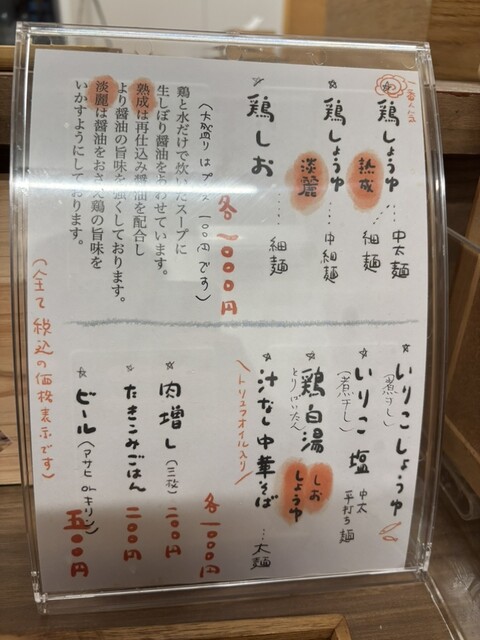 一番人気
鶏しょうゆ 熟成 … 中太麺
細麺
☆ 鶏しょうゆ 淡麗 … 中細麺
☆ 鶏しお … 細麺
各 1000円
(大盛りはプラス100円です)
鶏と水だけで炊いたスープに
生しぼり醤油をあわせています。
熟成は再仕込み醤油を配合し
より醤油の旨味を強くしております。
淡麗は醤油をおさえ鶏の旨味を
いかすようにしております。
☆ いりこしょうゆ
(煮干し)
☆ いりこ 塩 中太平打ち麺
(煮干し)
☆ 鶏白湯 しお しょうゆ
とりぱいたん
☆ 汁なし中華そば … 太麺
トリュフオイル入り
各 1000円
☆ 肉増し(三枚) 200円
☆ たきこみごはん 200円
☆ ビール(アサヒ or キリン) 五00円
(全て税込の価格表示です)